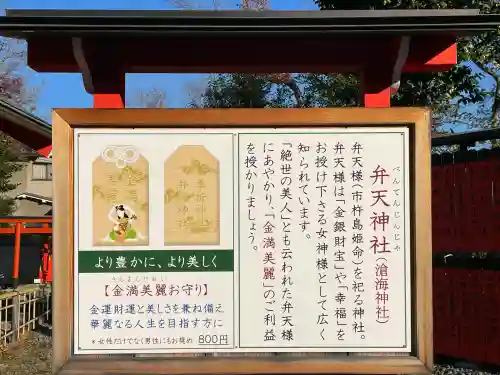 べんてんじんじゃ
弁天神社(滄海神社)
弁天様(市杵島姫命)を祀る神社。
弁天様は「金銀財宝」や「幸福」を
お授け下さる女神様として広く
知られています。
「絶世の美人」とも云われた弁天様
にあやかり、「金満美麗」のご利益
を授かりましょう。
より豊かに、より美しく
きんまんびれい
【金満美麗お守り】
金運財運と美しさを兼ね備え
華麗なる人生を目指す方に
*女性だけでなく男性にもお奨め 800円